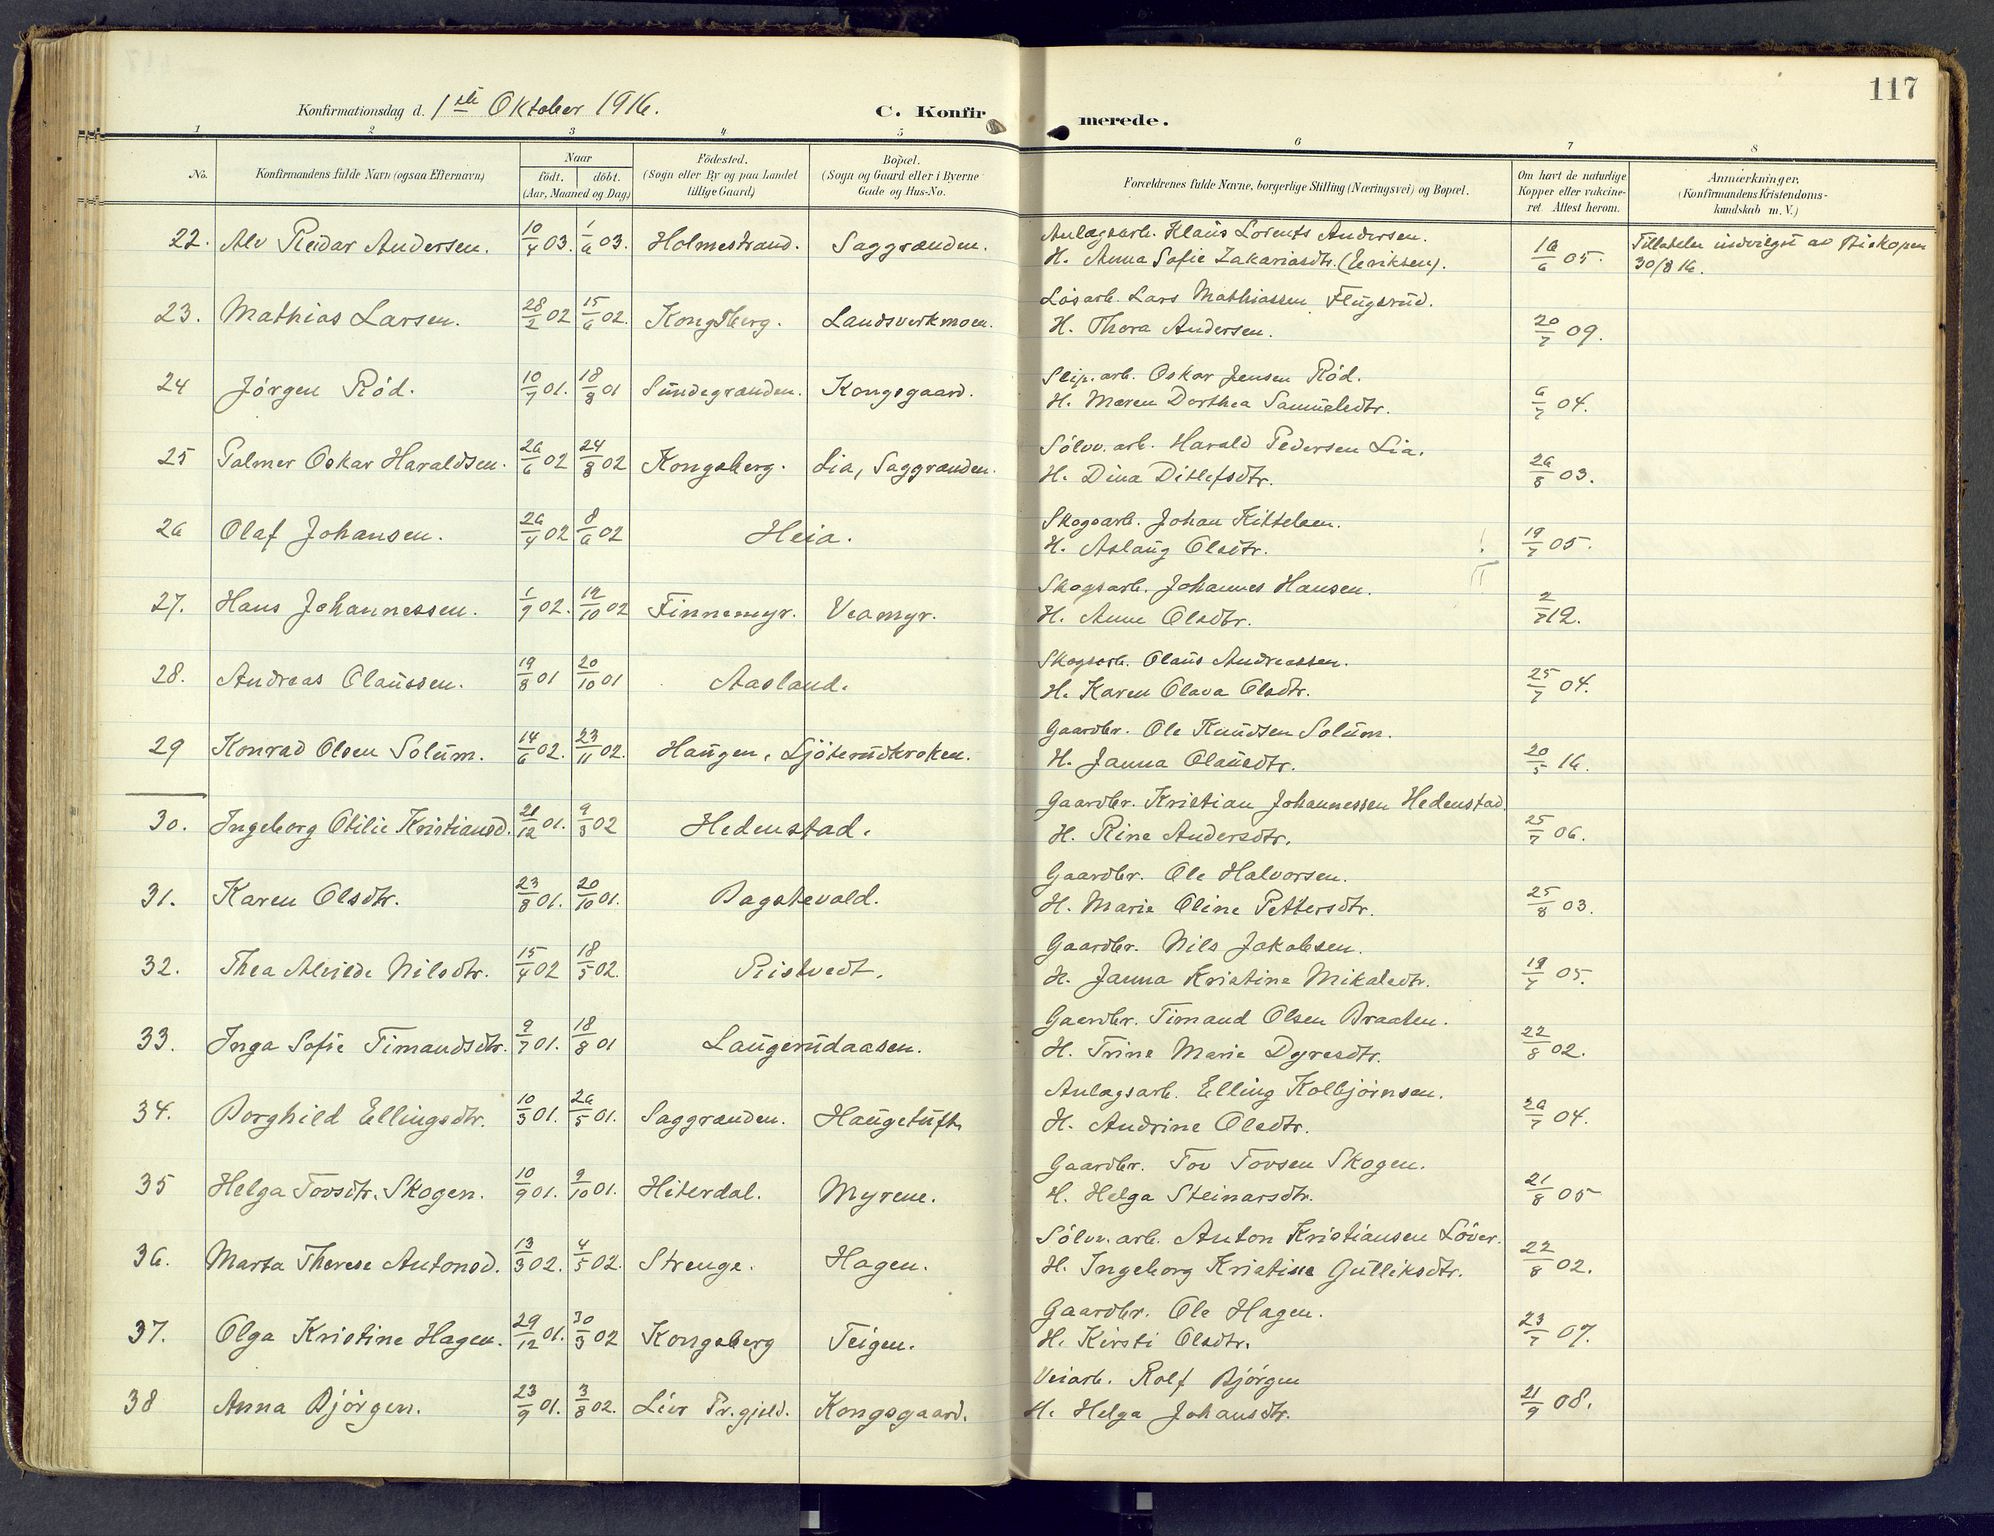 117
Konfirmationsdag d. 1ste Oktober 1916.
C. Konfirmerede.
1 2 3 4 5 6 7 8
No.
Konfirmandens fulde Navn (ogsaa Efternavn)
Naar
født. døbt.
(Aar, Maaned og Dag)
Fødested.
(Sogn eller By og paa Landet
tillige Gaard)
Bopæl.
(Sogn og Gaard eller i Byerne
Gade og Hus-No.
Forældrenes fulde Navne, borgerlige Stilling (Næringsvei) og Bopæl.
Om havt de naturlige
Kopper eller vakcine-
ret Attest herom.
Anmærkninger.
(Konfirmandens Kristendoms-
kundskab m. V.)
22. Alv Reidar Andersen. 10/4 03. 1/6 03. Holmestrand. Saggrænden. Anlægsarb. Klaus Lorents Andersen.
H. Anna Sofie Zakariasdtr. (Eriksen). 16/6 05. Tilladelse indvilget av Biskopen
30/8 16.
23. Mathias Larsen. 28/2 02 15/6 02. Kongsberg. Landsverkmoen. Løsarb. Lars Mathiassen Flugsrud.
H. Thora Andersen. 20/7 09.
24 Jørgen Rød. 10/7 01. 18/8 01 Sundegrænden. Kongsgaard. Slip. arb. Oskar Jensen Rød.
H. Maren Dorthea Samuelsdtr. 6/7 04.
25 Palmer Oskar Haraldsen. 26/6 02 24/8 02 Kongsberg. Lia, Saggrænden. Sølvv. arb. Harald Pedersen Lia.
H. Dina Ditlefsdtr. 26/8 03.
26 Olaf Johansen. 26/4 02 8/6 02 Heia. Skogsarb. Johan Kittelsen.
H. Aslaug Olsdtr. 19/7 05.
27. Hans Johannessen. 1/9 02. 12/10 02 Finnemyr. Veamyr. Skogsarb. Johannes Hansen.
H. Anne Olsdtr. 2/7 12.
28. Andreas Olaussen. 19/8 01 20/10 01 Aasland. Skogsarb. Olaus Andreassen.
H. Karen Olava Olsdtr. 25/7 04.
29 Konrad Olsen Solum. 14/6 02. 23/11 02. Haugen, Ljøterudkroken. Gaardbr. Ole Knudsen Solum.
H. Janna Olausdtr. 20/5 16.
30. Ingeborg Otilie Kristiansd. 21/12 01. 9/3 02 Hedenstad. Gaardbr. Kristian Johannessen Hedenstad
H. Rine Andersdtr. 25/7 06.
31. Karen Olsdtr. 23/8 01. 20/10 01. Bagstevold. Gaardbr. Ole Halvorsen.
H. Marie Oline Pettersdtr. 25/8 03.
32. Thea Alvilde Nilsdtr. 15/4 02 18/5 02. Ristvedt. Gaardbr. Nils Jakobsen.
H. Janna Kristine Mikalsdtr. 19/7 05.
33. Inga Sofie Timandsdtr. 9/7 01. 18/8 01 Laugerudaasen. Gaardbr. Timand Olsen Braaten.
H. Trine Marie Dyresdtr. 22/8 02.
34. Borghild Ellingsdtr. 10/3 01. 26/5 01. Saggrænden. Haugetuft. Anlægsarb. Elling Kolbjørnsen.
H. Andrine Olsdtr. 26/7 04.
35 Helga Tovsdtr. Skogen. 10/9 01. 9/10 01. Hiterdal. Myrene. Gaardbr. Tov Tovsen Skogen.
H. Helga Steinarsdtr. 21/8 05
36. Marta Therese Antonsd. 13/3 02. 4/5 02. Strenge. Hagen. Sølvv. arb. Anton Kristiansen Løver.
H. Ingeborg Kristine Gulliksdtr. 22/8 02.
37. Olga Kristine Hagen. 29/12 01. 30/3 02 Kongsberg Teigen. Gaardbr. Ole Hagen.
H. Kirsti Olsdtr. 23/7 07.
38 Anna Bjørgen. 23/9 01. 3/8 02. Lier Pr.gjeld. Kongsgaard. Veiarb. Rolf Bjørgen
H. Helga Johansdtr. 21/9 08.